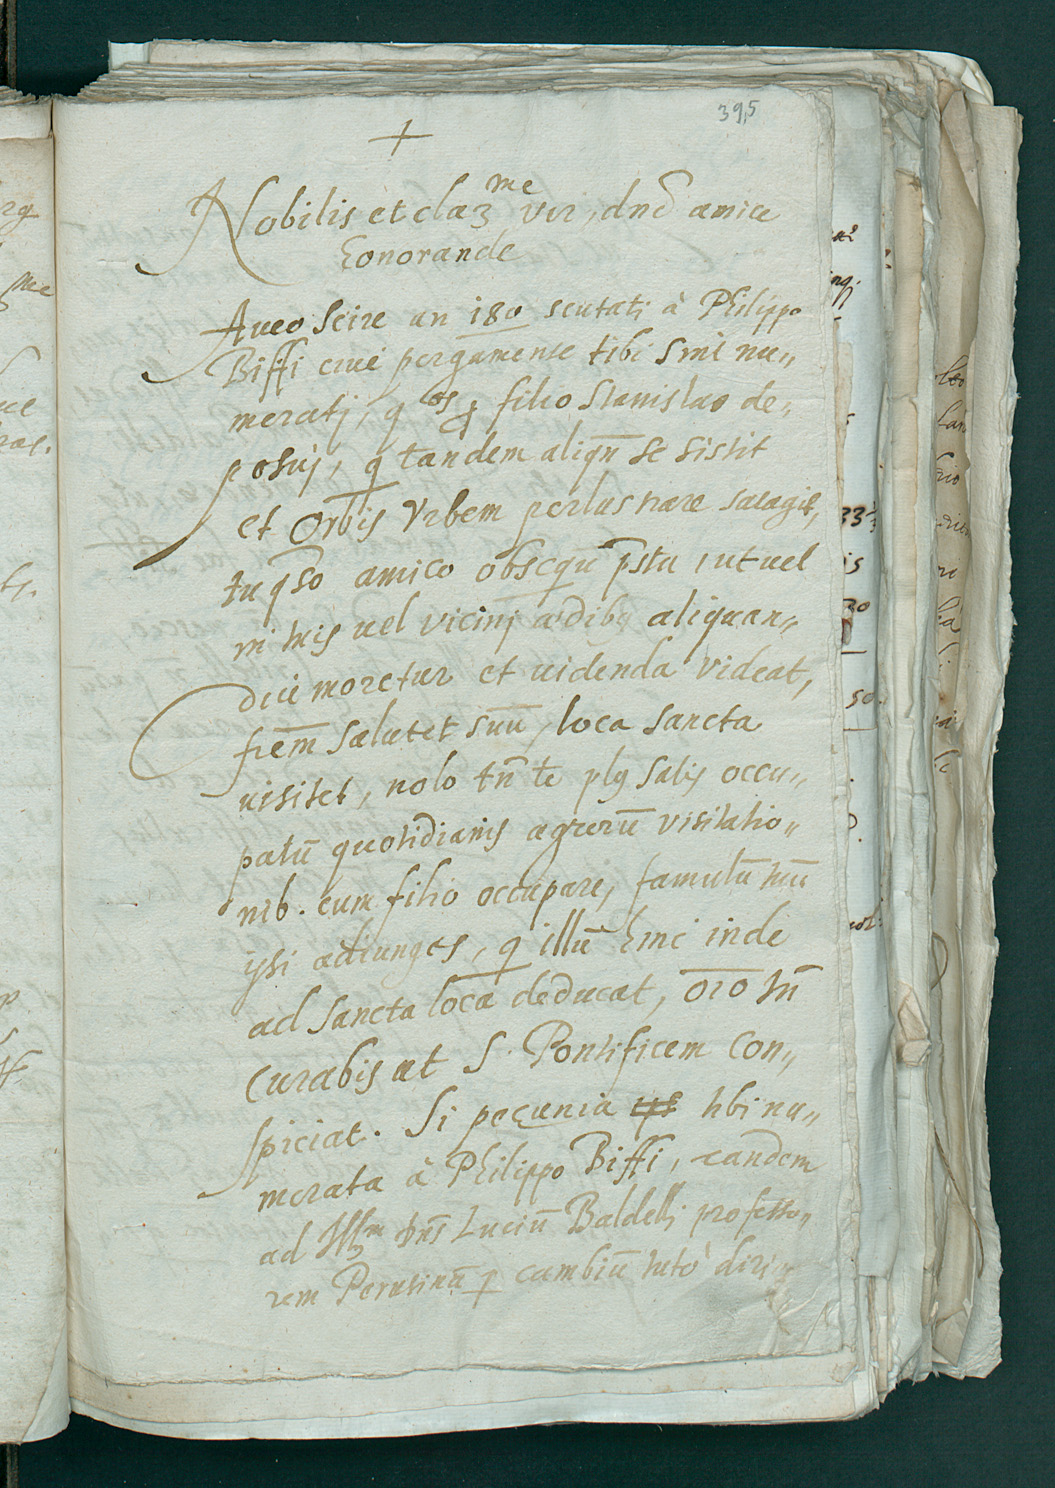 395
+
Nobilis et claꝫ me vir, dnē amice
honorande
Aveo scire an 180 scutati à Philippo
Biffi cive pergamense tibi sint nu„
meratj, qos ꝓ filio Stanislao de„
posuj, q̄ tandem aliqn̄ se sistit
et Orbis Urbem perlustrare satagit,
tu qs̄o amico obsequū p̄sta, ut vel
in tuis vel vicinj ædibꝰ aliquan„
diu moretur et videnda videat,
frem̄ salutet suū, loca sancta
visitet, nolo tn̄ te plꝰ satis occu„
patū quotidianis ægrorū visitatio„
nib. cum filio occupare, famulū tuū
ipsi adiunges, q̄ illū hinc inde
ad sancta loca deducat, oro tn̄
curabis ut S. Pontificem con„
spiciat. Si pecunia tibi nu„
merata à Philippo Biffi, eandem
ad Illm̄ dn̄s Luciū Baldellj professo„
rem Perusinū ꝑ cambiū tutò diri„